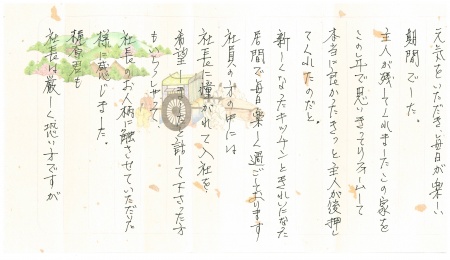 元気をいただき毎日が楽しい
期間でした。
主人が残してくれましたこの家を
この年で思いきってリフォームして
本当に良かったきっと主人が後押し
てくれたのだと。
新しくなったキッチンときれいになた
居間で毎日楽しく過ごしております
社員の方の中には
社長に憧がれて入社を
希望しましたと話して下さった方
もいらしゃって、
社長のお人柄に触させていただいた
様に感じました。
梅原君も
社長は厳しく恐い方ですが